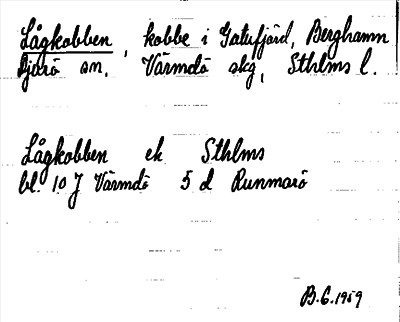 Lågkobben, kobbe i Gatufjärd, Berghamn
Djurö sn, Värmdö skg, Sthlms l.
Lågkobben ek Sthlms
bl. 10 J Värmdö 5 d Runmarö
B.G. 1959